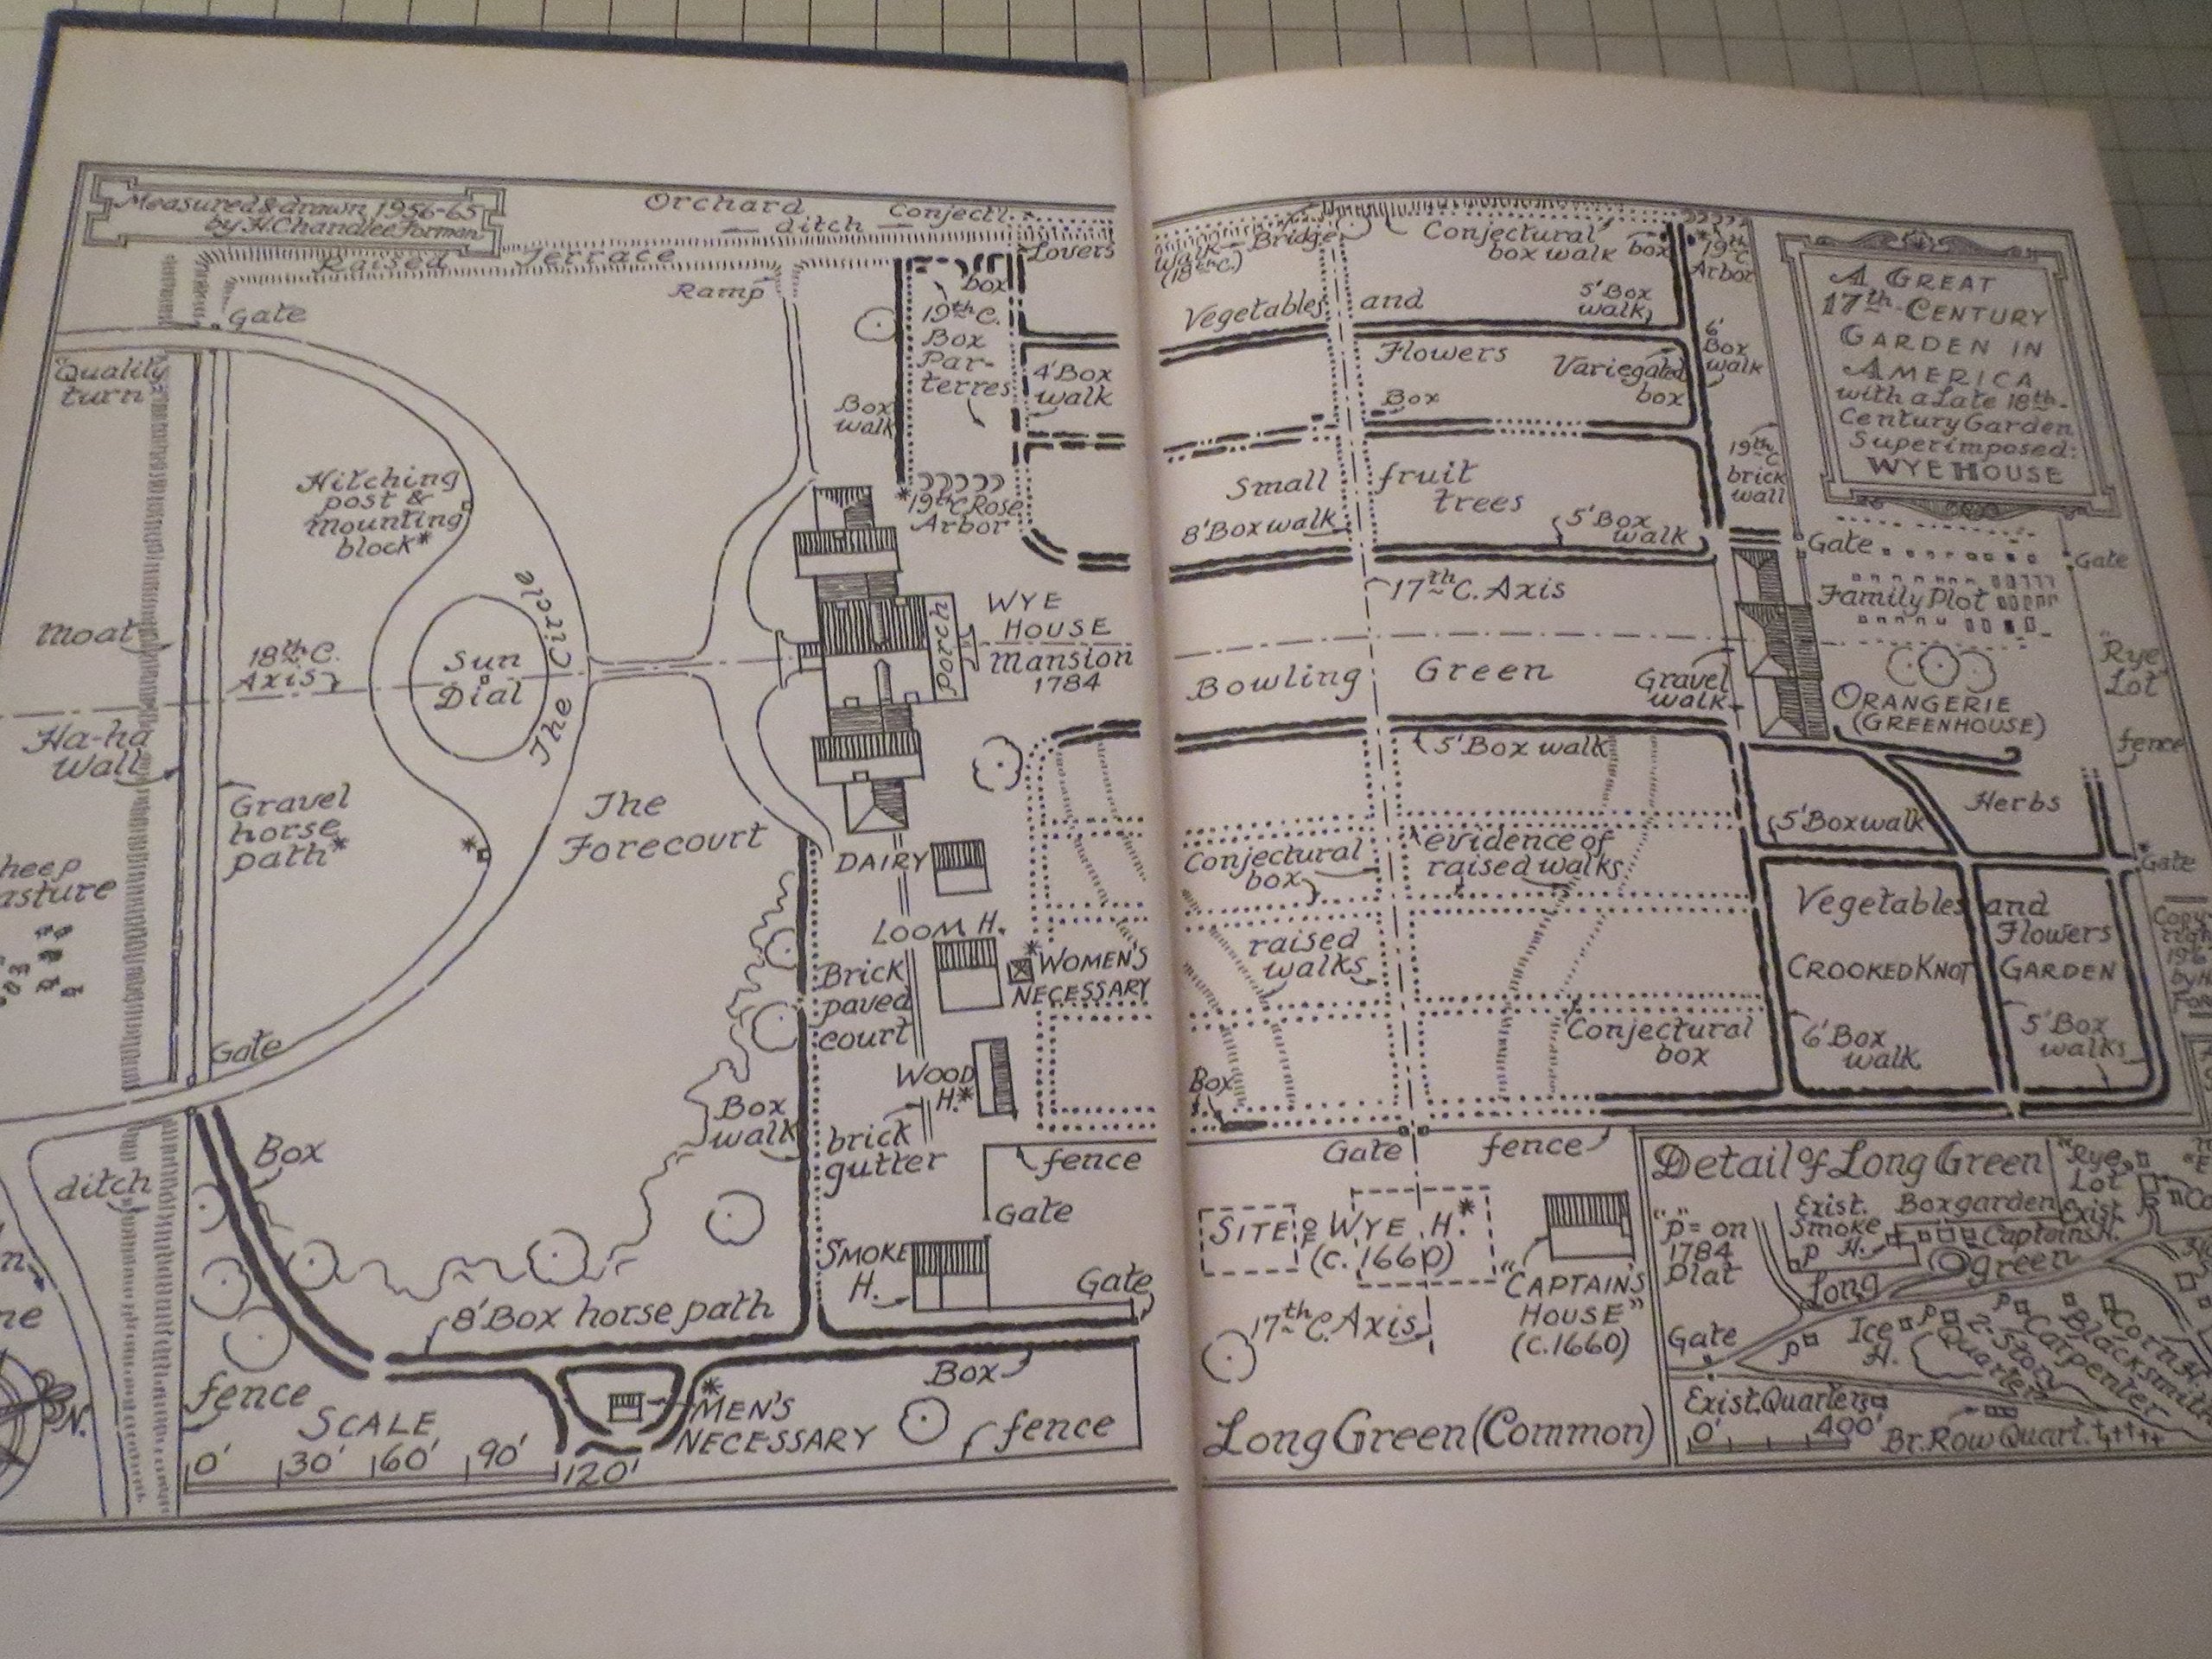 Measured & drawn 1956-65
by H. Chandlee Forman
Orchard
ditch
Conject'l.
Raised Terrace
Lovers
Ramp
Gate
"Quality
turn"
box
19th C.
Box
Par-
terres
4' Box
walk
Box
walk
Hitching
post &
mounting
block*
*19th C. Rose
Arbor
Moat
18th C.
Axis
Sun
Dial
The Circle
WYE
HOUSE
Mansion
1784
Porch
Ha-ha
Wall
Gravel
horse
path*
*
The
Forecourt
DAIRY
LOOM H.
*
WOMEN'S
NECESSARY
Brick
paved
court
WOOD
H.*
Gate
Box
walk
brick
gutter
Box
ditch
fence
Gate
SMOKE
H.
Gate
8' Box horse path
Box
fence
SCALE
0' 30' 60' 90' 120'
*MEN'S
NECESSARY
fence
N.
Walk
(18th C.)
Bridge
Conjectural
box walk
box
*19th
C.
Arbor
Vegetables and
Flowers
5' Box
walk
6'
Box
walk
Variegated
box
Box
Small fruit
trees
19th
C.
brick
wall
8' Box walk
5' Box
walk
17th C. Axis
Bowling Green
Gravel
walk
5' Box walk
A GREAT
17th CENTURY
GARDEN IN
AMERICA
with a Late 18th-
Century Garden
Superimposed:
WYE HOUSE
Gate
Gate
Family Plot
"Rye
Lot"
ORANGERIE
(GREENHOUSE)
fence
Herbs
5' Box walk
Gate
Conjectural
box
evidence of
raised walks
raised
walks
Vegetables and
Flowers
CROOKED KNOT GARDEN
Conjectural
box
6' Box
walk
5' Box
walks
Box
Gate
fence
SITE OF WYE H.*
(c. 1660)
"CAPTAIN'S
HOUSE"
(c. 1660)
17th C. Axis
Long Green (Common)
Detail of Long Green
"Rye
Lot"
"P" = on
1784
Plat
Exist.
Smoke
H.
Box garden
Exist.
Captain's H.
P
Long Green
Gate
P
Ice
H.
P
2-Story
Quarters
P
Carpenter
Blacksmith
Corn H.
Exist. Quarters
0' 400'
Br. Row Quart.